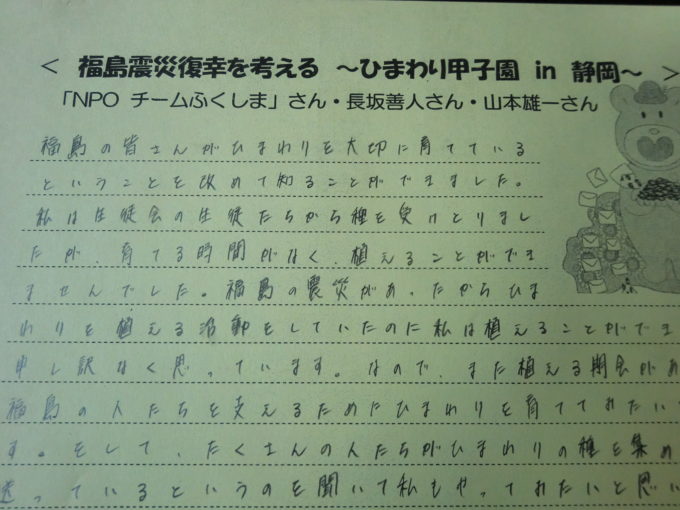 < 福島震災復幸を考える ～ひまわり甲子園 in 静岡～ >
「NPO チームふくしま」さん・長坂善人さん・山本雄一さん
福島の皆さんがひまわりを大切に育てている
ということを改めて知ることができました。
私は生徒会の生徒たちから種を受けとりまし
たが、育てる時間がなく、植えることができ
ませんでした。福島の震災があったからひま
わりを植える活動をしていたのに私は植えることができ
申し訳なく思っています。なので、また植える機会があ
福島の人たちを支えるためにひまわりを育ててみたい
す。そして、たくさんの人たちがひまわりの種を集め
送っているというのを聞いて私もやってみたいと思い